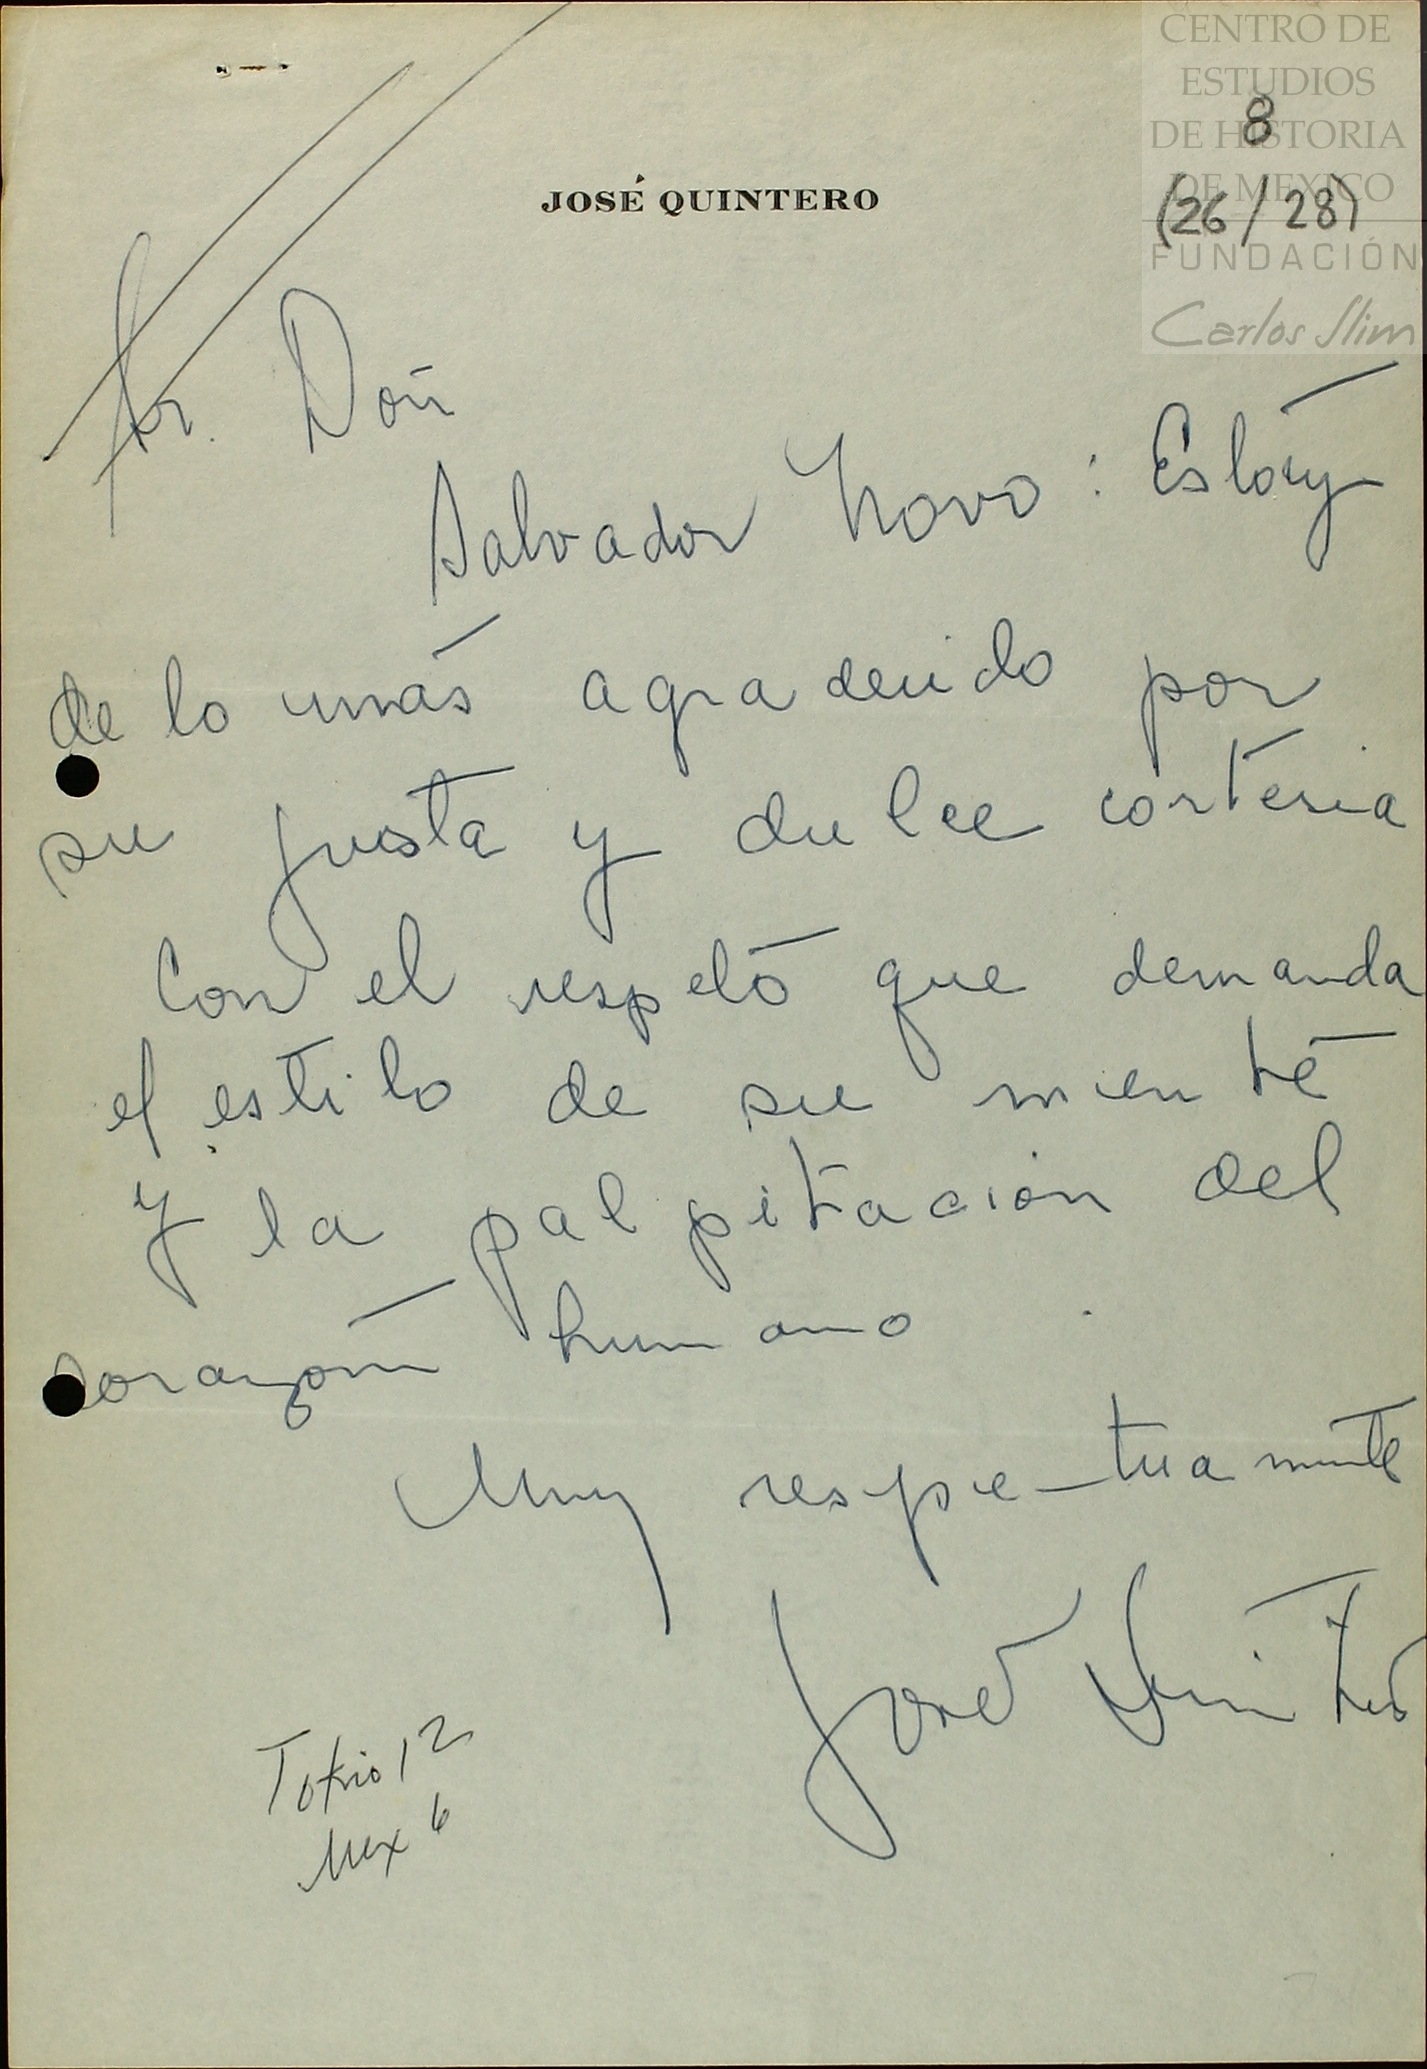 CENTRO DE
ESTUDIOS
DE HISTORIA
DE MEXICO
FUNDACIÓN
Carlos Slim
8
(26/28)
JOSÉ QUINTERO
Sr. Don
Salvador Novo: Estóy
de lo más agradecido por
su justa y dulce cortesia
Con el respetó que demanda
el estilo de su menté
y la palpitación del
corazón humano
Muy respe-tuamente
José Quintero
Tokio 12
Mex 6